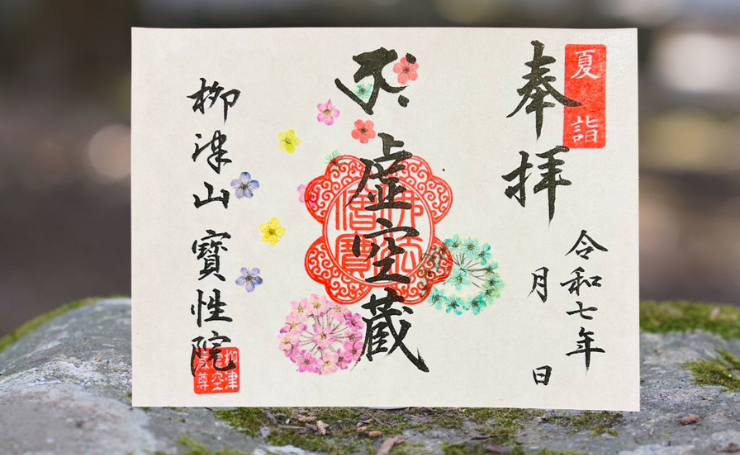 夏詣
奉拝
令和七年
月 日
虚空蔵
佛法
僧寶
柳津山 寶性院
柳津
空
尊